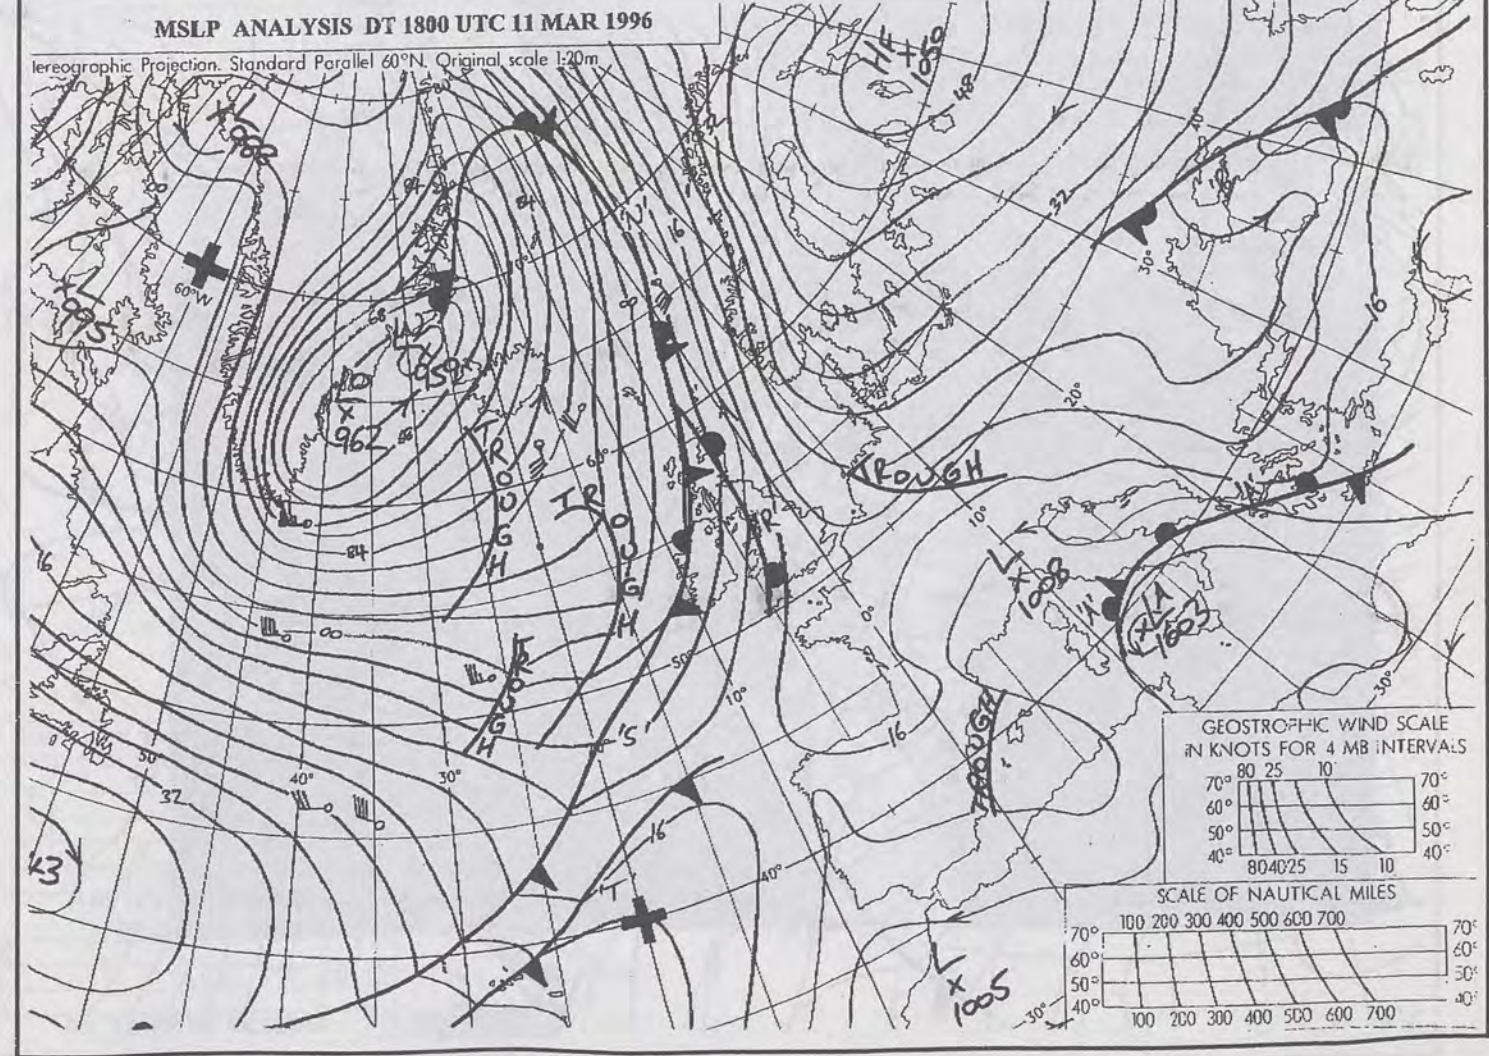 MSLP ANALYSIS DT 1800 UTC 11 MAR 1996
tereographic Projection. Standard Parallel 60°N. Original scale 1:20m
HF
1050
48
L
988
32
'U'
16
60°W
L
995
68
L
959
LO
962
60°
84
TROUGH
TROUGH
TROUGH
TROUGH
TROUGH
'R'
16
20°
10°
30°
0°
L
1008
LA
1003
16
00
'S'
50°
10°
50°
40°
30°
32
16
'T'
40°
16
30°
L
1005
30°
GEOSTROPHIC WIND SCALE
IN KNOTS FOR 4 MB INTERVALS
80 25 10
70° 70°
60° 60°
50° 50°
40° 40°
80 40 25 15 10
SCALE OF NAUTICAL MILES
100 200 300 400 500 600 700
70° 70°
60° 60°
50° 50°
40° 40°
100 200 300 400 500 600 700